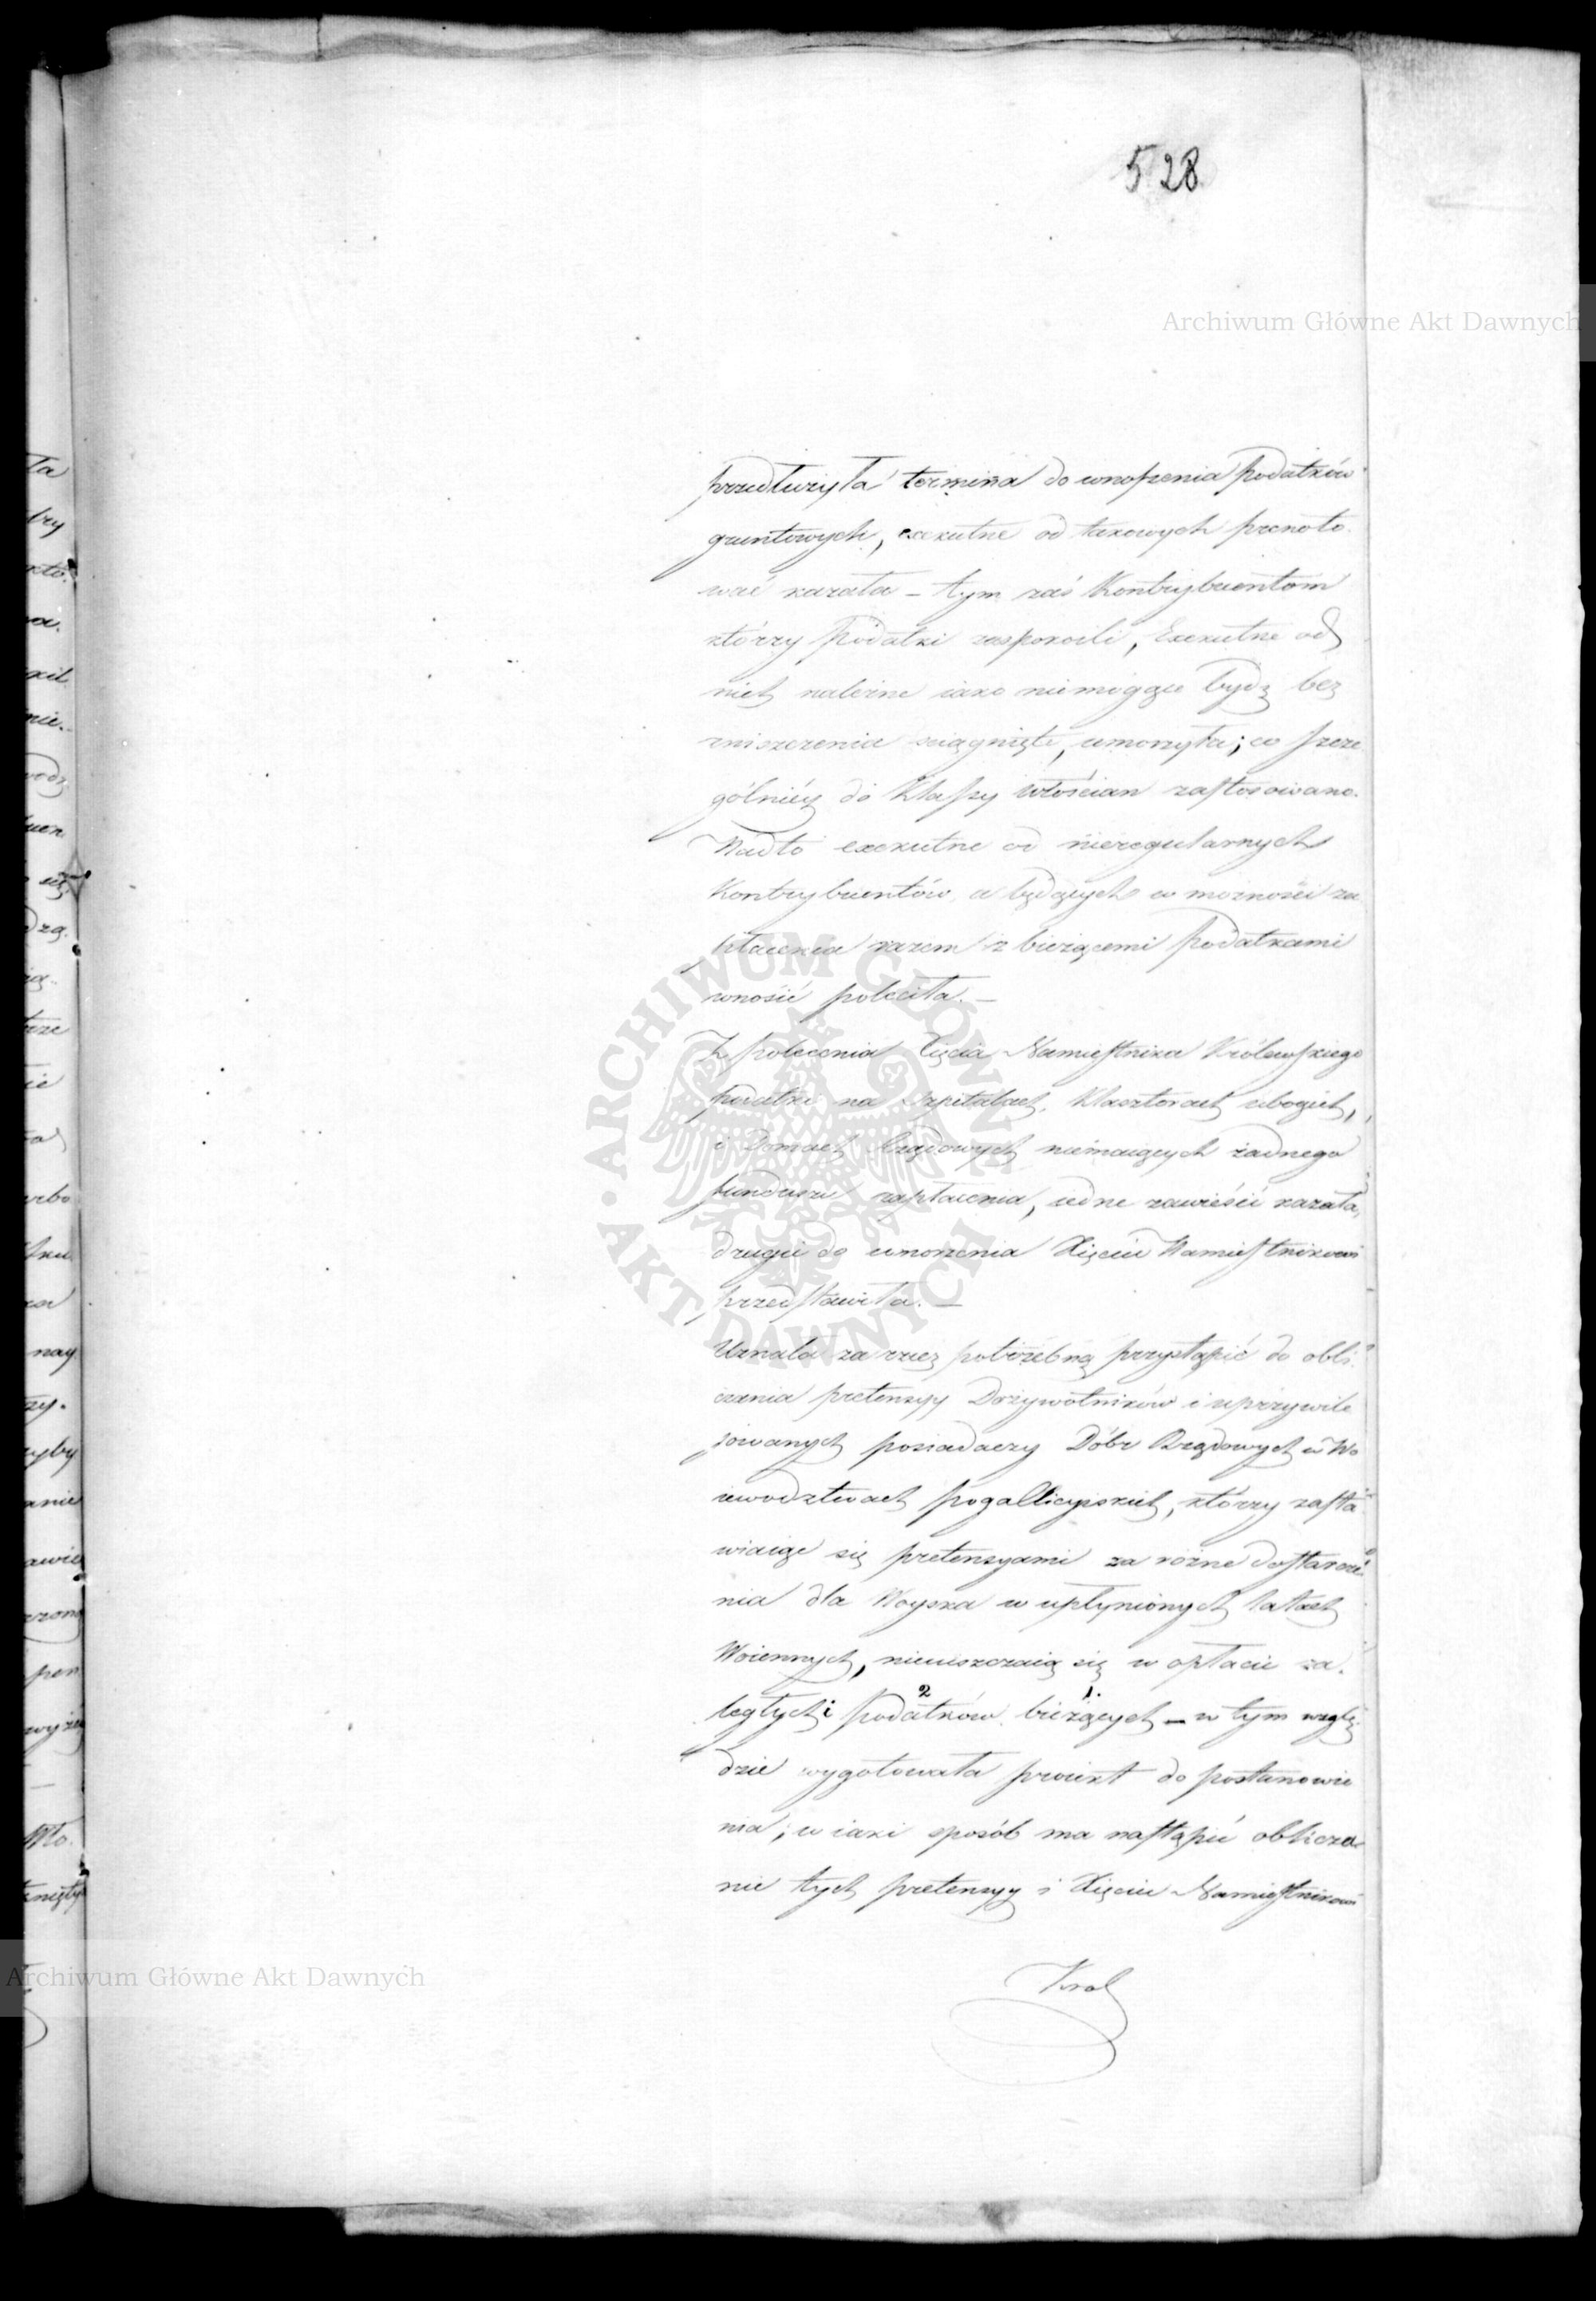 528
Archiwum Główne Akt Dawnych
przedłużyła termina do wnoszenia Podatków
gruntowych, exekutne od takowych prenoto
wać kazała – tym zaś Kontrybuentom
którzy Podatki zaspokoili, Exekutne od
nich należne iako niemogące bydź bez
zniszczenia sciągnięte, umorzyła; co szcze
gólniéy do Klassy włościan zastosowano.
Nadto exekutne od nieregularnych
Kontrybuentów, a będących w możności za
płacenia razem z bieżącemi Podatkami
wnosić poleciła. –
Z polecenia Xięcia Namiestnika Królewskiego
podatki na Szpitalach, Klasztorach ubogich,
i Domach Rządowych niemaiących żadnego
funduszu zapłacenia, iedne zawiésić kazała,
drugie do umorzenia Xięciu Namiestnikowi
przedstawiła. –
Uznała za rzecz potrzebną przystąpić do obli
czenia pretensyy Dożywotników i uprzywile
jowanych posiadaczy Dóbr Rządowych w Wo
iewodztwach pogallicyiskich, którzy zasta
wiaiąc się pretensyami za rożne dostarcze
nia dla Woyska w upłynionych latach
Woiennych, nieuiszczaią się w opłacie za
ległych i podatków bieżących – w tym wzglę
2 1.
dzie wygotowała proiekt do postanowie
nia; w iaki sposób ma nastąpić oblicza
nie tych pretensyy i Xięciu Namiestnikowi
Krol
ARCHIWUM GŁÓWNE AKT DAWNYCH
Archiwum Główne Akt Dawnych